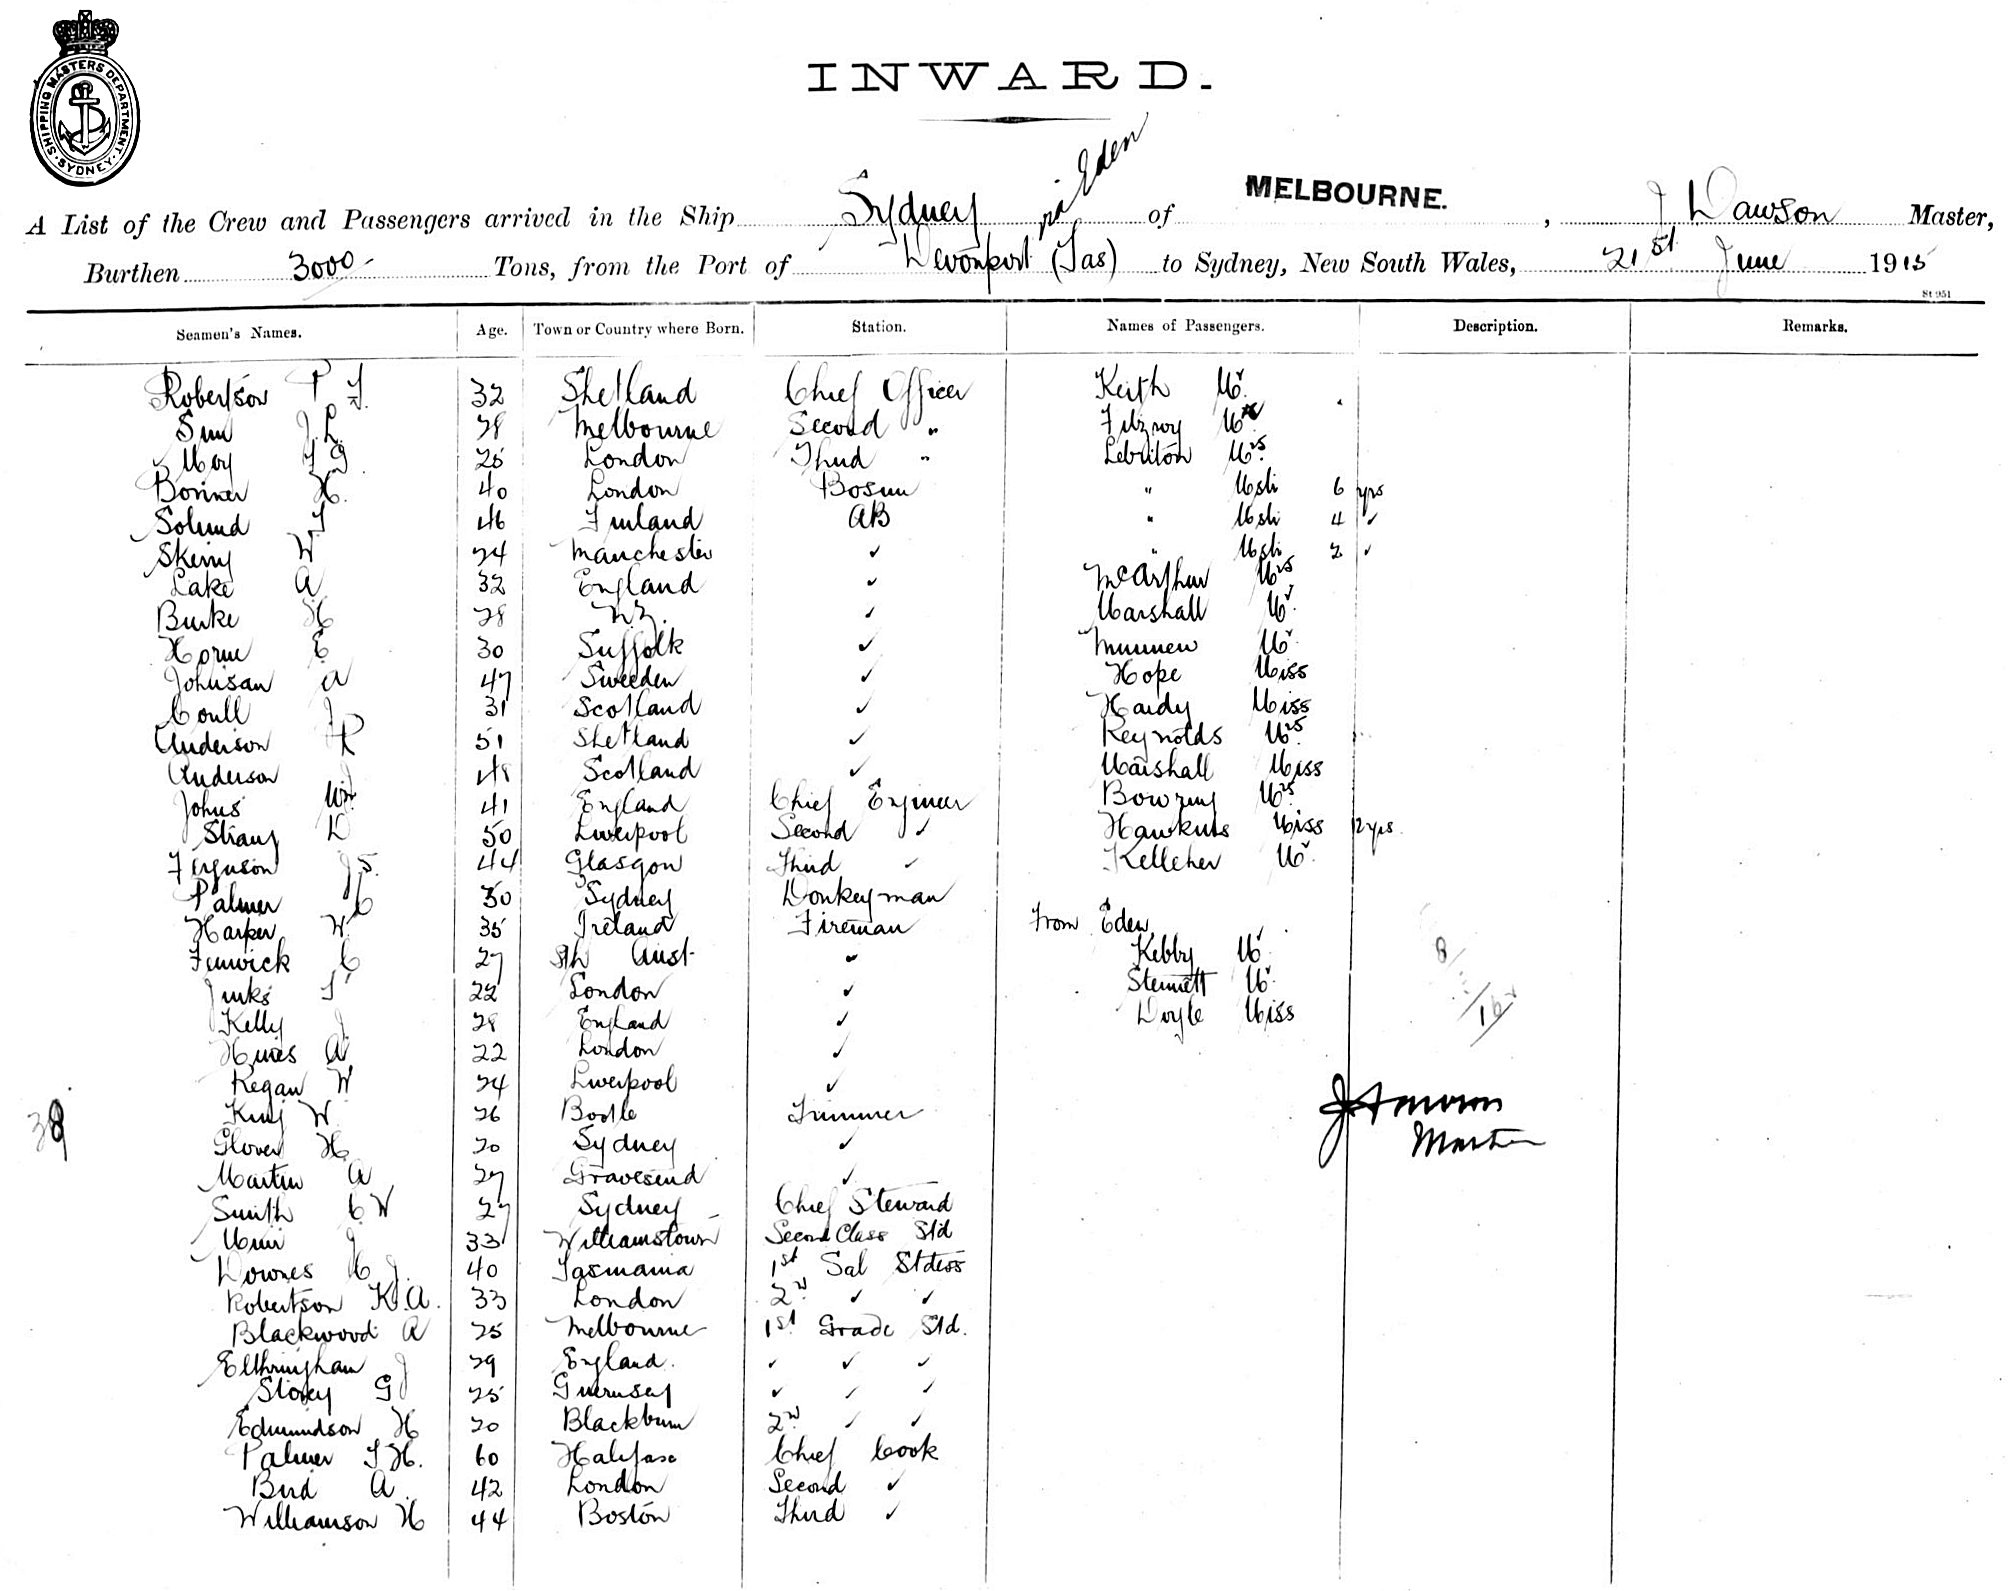 SHIPPING MASTERS DEPARTMENT. SYDNEY.
INWARD.
A List of the Crew and Passengers arrived in the Ship Sydney via Eden of MELBOURNE. , J Dawson Master,
Burthen 3000 Tons, from the Port of Devonport (Tas) to Sydney, New South Wales, 21st June 1915
St 951
Seamen's Names. Age. Town or Country where Born. Station. Names of Passengers. Description. Remarks.
Robertson 32 Shetland Chief Officer Keith Mr
Sim J.L. 28 Melbourne Second " Fitzroy
May 25 London Third " Lebriton Mrs
Bonner H. 40 London Bosun " Mstr 6 yrs
Solund 46 Finland AB " Mstr 4 ✓
Skerry W 24 Manchester ✓ " Mstr 2 ✓
Lake A 32 England ✓ McArthur Mrs
Burke H 28 N.Z. ✓ Marshall Mr
Horne E 30 Suffolk ✓ Mr
Johnsan A 47 Sweeden ✓ Hope Miss
Coull J 31 Scotland ✓ Hardy Miss
Anderson R 51 Shetland ✓ Reynolds Mrs
Anderson J 48 Scotland ✓ Marshall Miss
Johns Wm 41 England Chief Engineer Bowring Mrs
Strang D 50 Liverpool Second ✓ Hawkins Miss 12 yrs.
Ferguson J S. 44 Glasgow Third ✓ Kelleher Mr
Palmer C 30 Sydney Donkeyman
Harker W 35 Ireland Fireman From Eden
Fenwick C 27 Sth Aust ✓ Kebby Mr
Jinks T 22 London ✓ Stennett Mr
Kelly J 28 England ✓ Doyle Miss
Hines A 22 London ✓
Regan W 24 Liverpool ✓
King W 26 Bootle Trimmer
Glover H. 20 Sydney ✓
Martin A 27 Gravesend ✓
Smith C W 27 Sydney Chief Steward
Muir J 33 Williamstown Second Class Std
Downes C J. 40 Tasmania 1st Sal Stdess
Robertson K.A. 33 London 2nd ✓ ✓
Blackwood A 25 Melbourne 1st Grade Std.
Elthringham J 29 England. ✓ ✓ ✓
Storey G J 25 Guernsey ✓ ✓ ✓
Edmundson H 20 Blackburn 2nd ✓ ✓
Palmer T H. 60 Halifax Chief Cook
Bird A. 42 London Second ✓
Williamson H 44 Boston Third ✓
38
8
16
J Dawson
Master